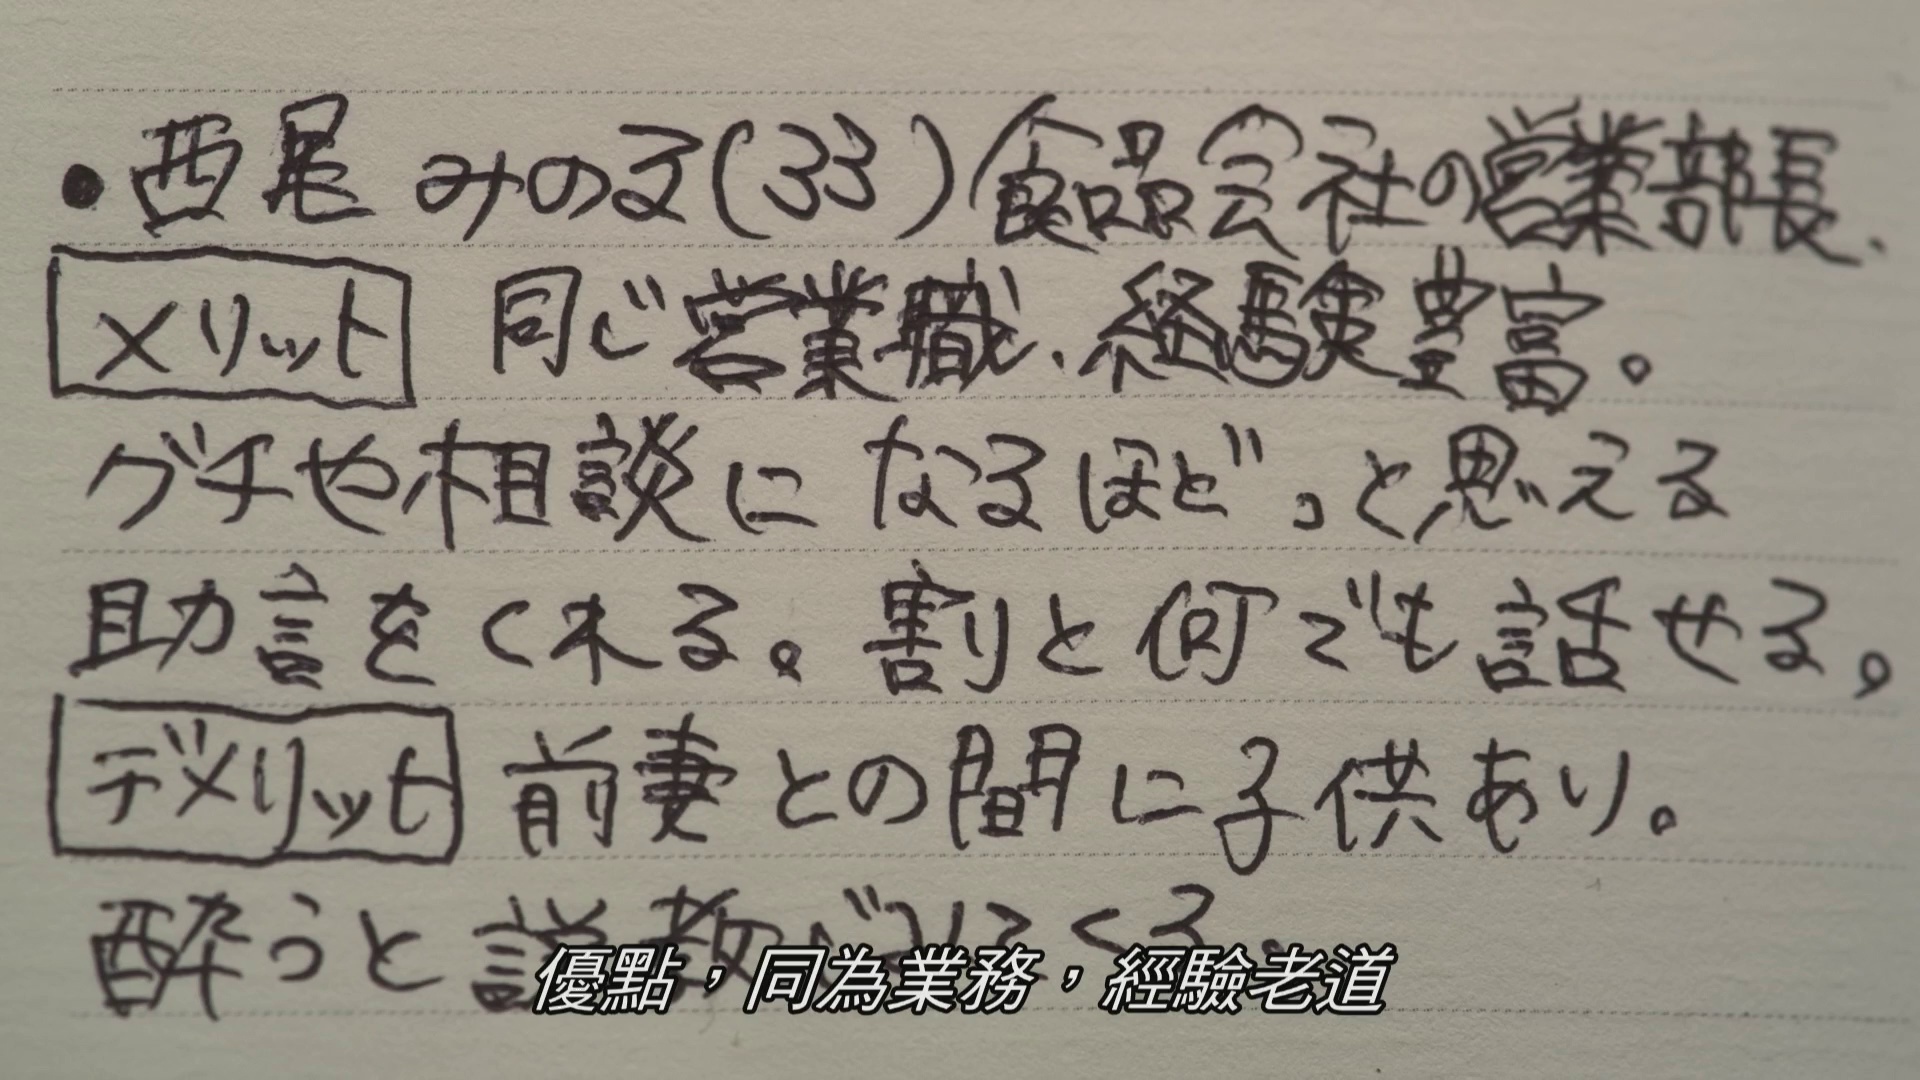 ・西尾 みの文(33) 食品会社の営業部長、
メリット 同じ営業職、経験豊富。
グチや相談に なるほど。っと思える
助言をくれる。割と何でも話せる。
デメリット 前妻との間に子供あり。
酔うと説教
優點，同為業務，經驗老道